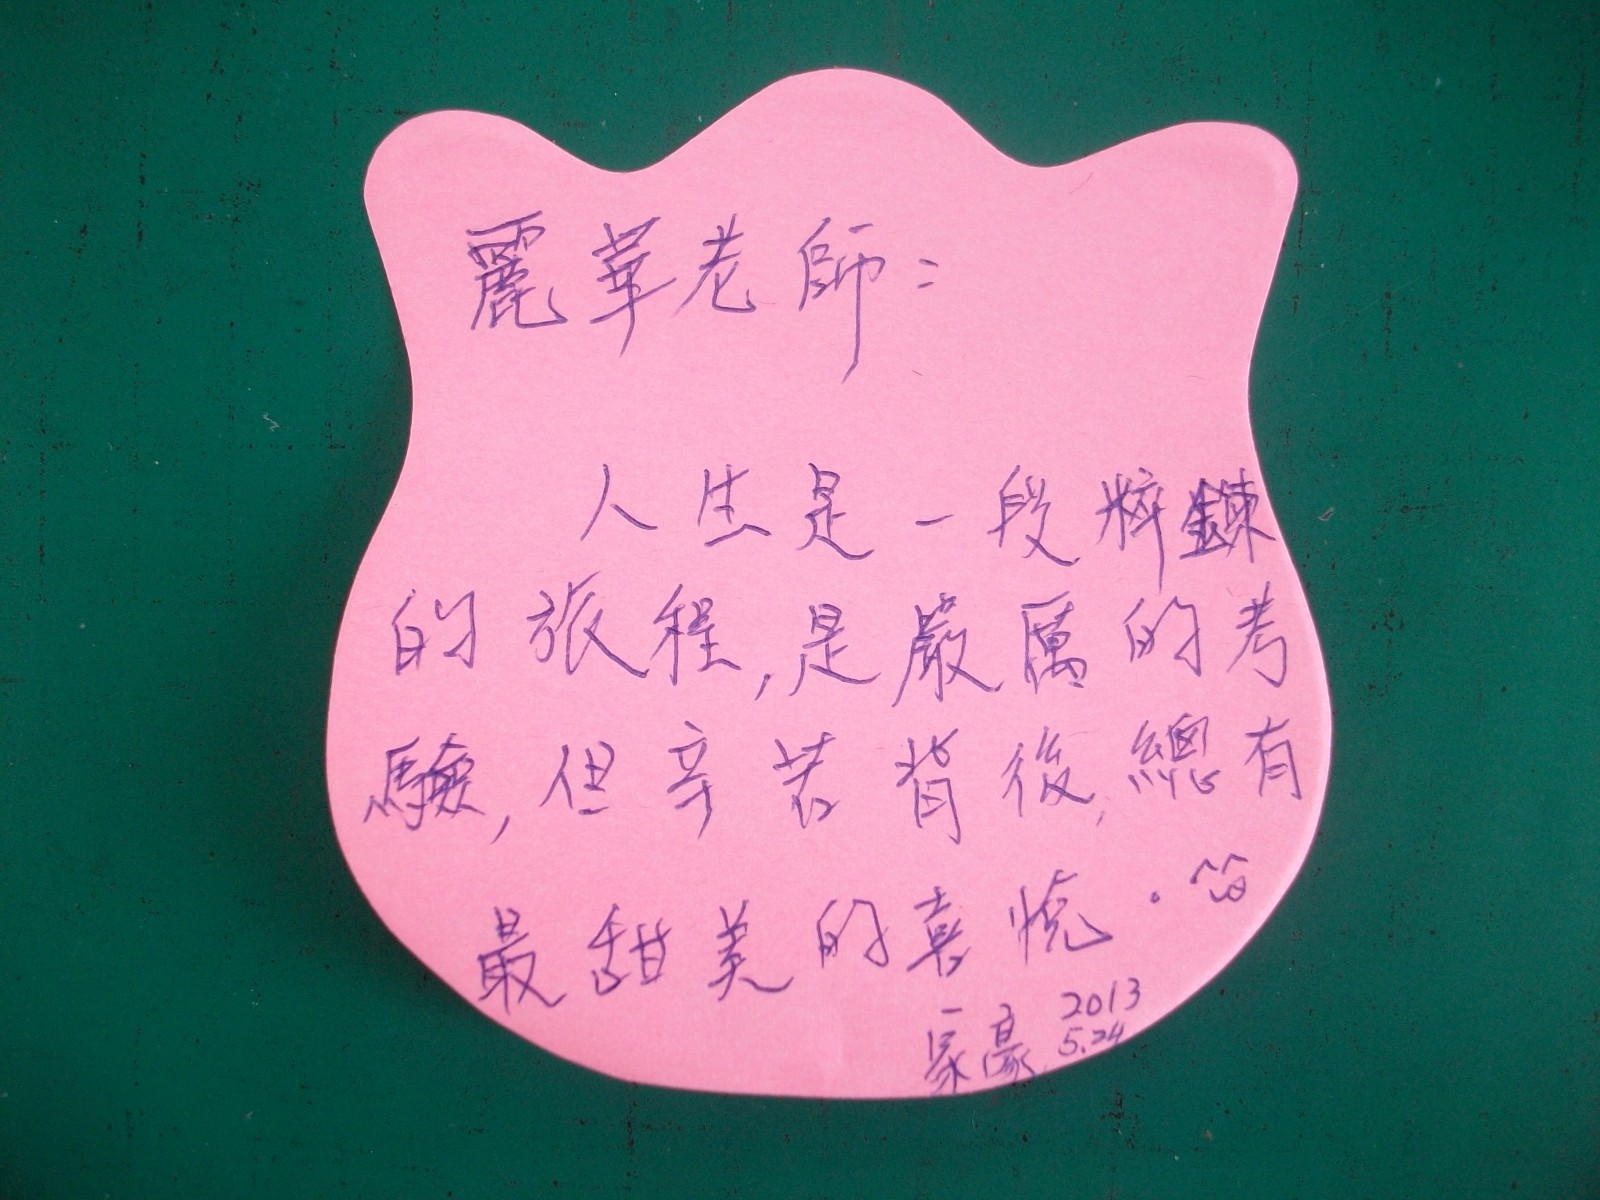 麗華老師：
人生是一段粹鍊
的旅程,是嚴厲的考
驗,但辛苦背後,總有
最甜美的喜悅.^^
家豪 2013
5.24